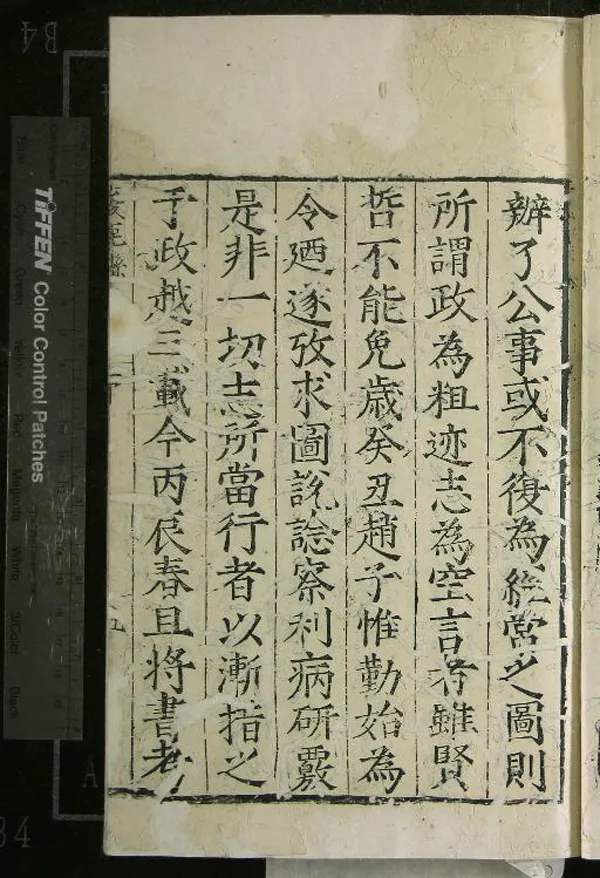 辦了公事或不復為經常之圖則
所謂政為粗迹志為空言者雖賢
哲不能免歲癸丑趙子惟勤始為
令廼遂攷求圖說諗察利病研覈
是非一切志所當行者以漸措之
于政越三載今丙辰春且將書考
TIFFEN Color Control Patches
B4